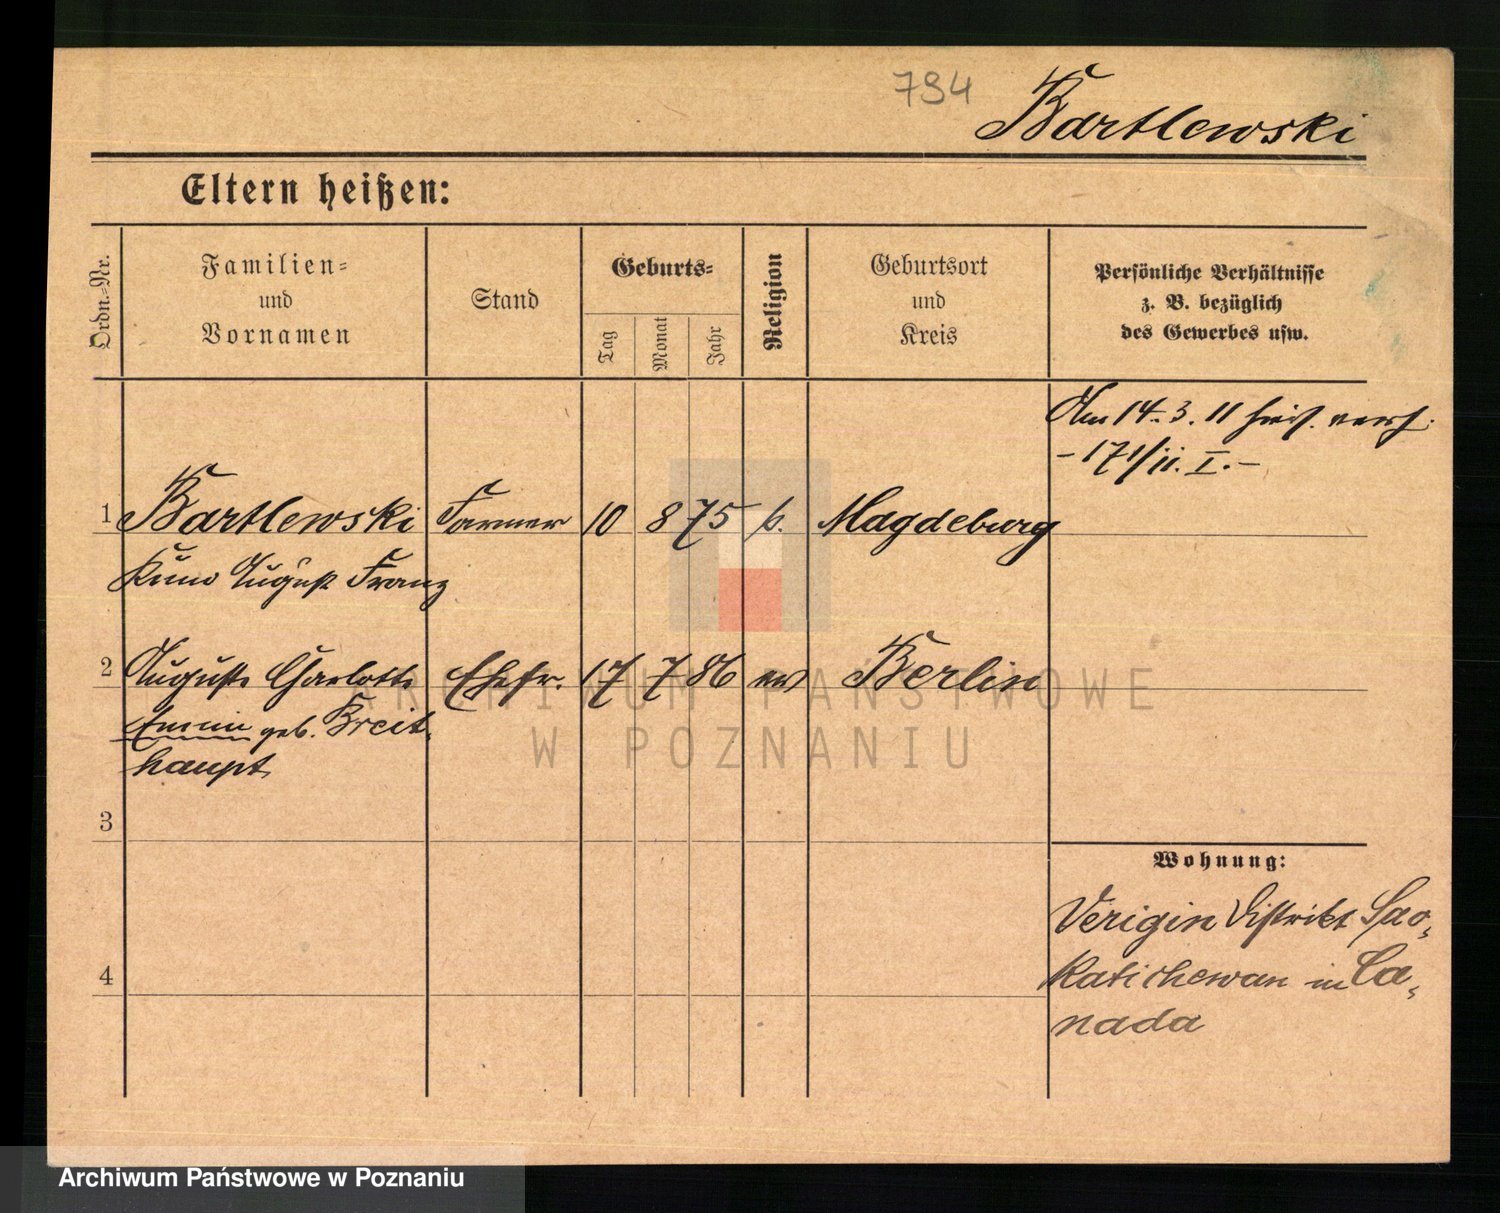 794 Bartlewski
Eltern heißen:
Ordn.-Nr.
Familien-
und
Vornamen
Stand
Geburts-
Tag
Monat
Jahr
Religion
Geburtsort
und
Kreis
Persönliche Verhältnisse
z. B. bezüglich
des Gewerbes usw.
Am 14. 3. 11
- 171/11. I. -
1 Bartlewski Farmer 10 8 75 Magdeburg
Kuno August Franz
2 Auguste Charlotte Ehefr. 17 7 86 ev Berlin
Emmi geb. Breit-
haupt
3
4
Wohnung:
Verigin Distrikt Sas-
katschewan in Ca-
nada
ARCHIWUM PAŃSTWOWE
W POZNANIU
Archiwum Państwowe w Poznaniu